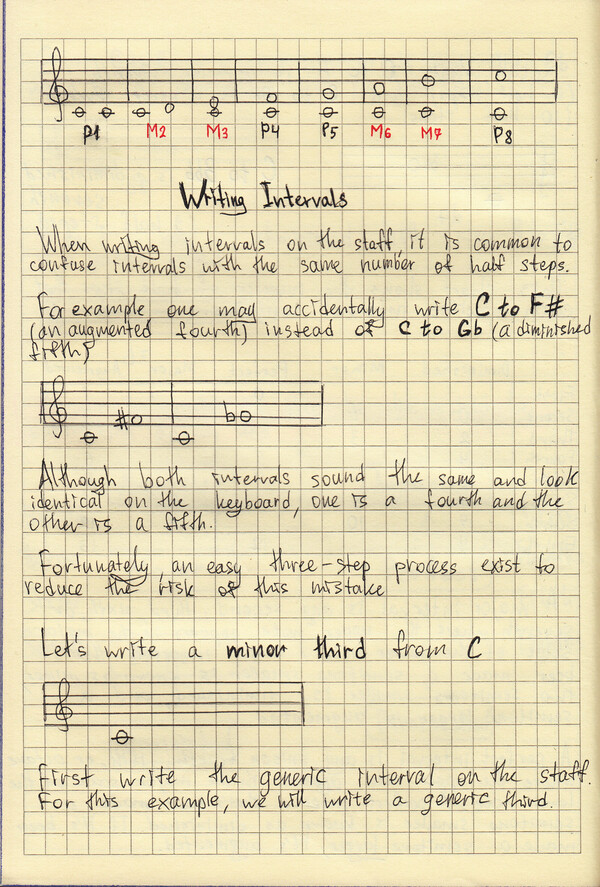 P1 M2 M3 P4 P5 M6 M7 P8
Writing Intervals
When writing intervals on the staff, it is common to
confuse intervals with the same number of half steps.
For example one may accidentally write C to F#
(an augmented fourth) instead of C to Gb (a diminished
fifth)
Although both intervals sound the same and look
identical on the keyboard, one is a fourth and the
other is a fifth.
Fortunately, an easy three-step process exist to
reduce the risk of this mistake
Let's write a minor third from C
First, write the generic interval on the staff.
For this example, we will write a generic third.